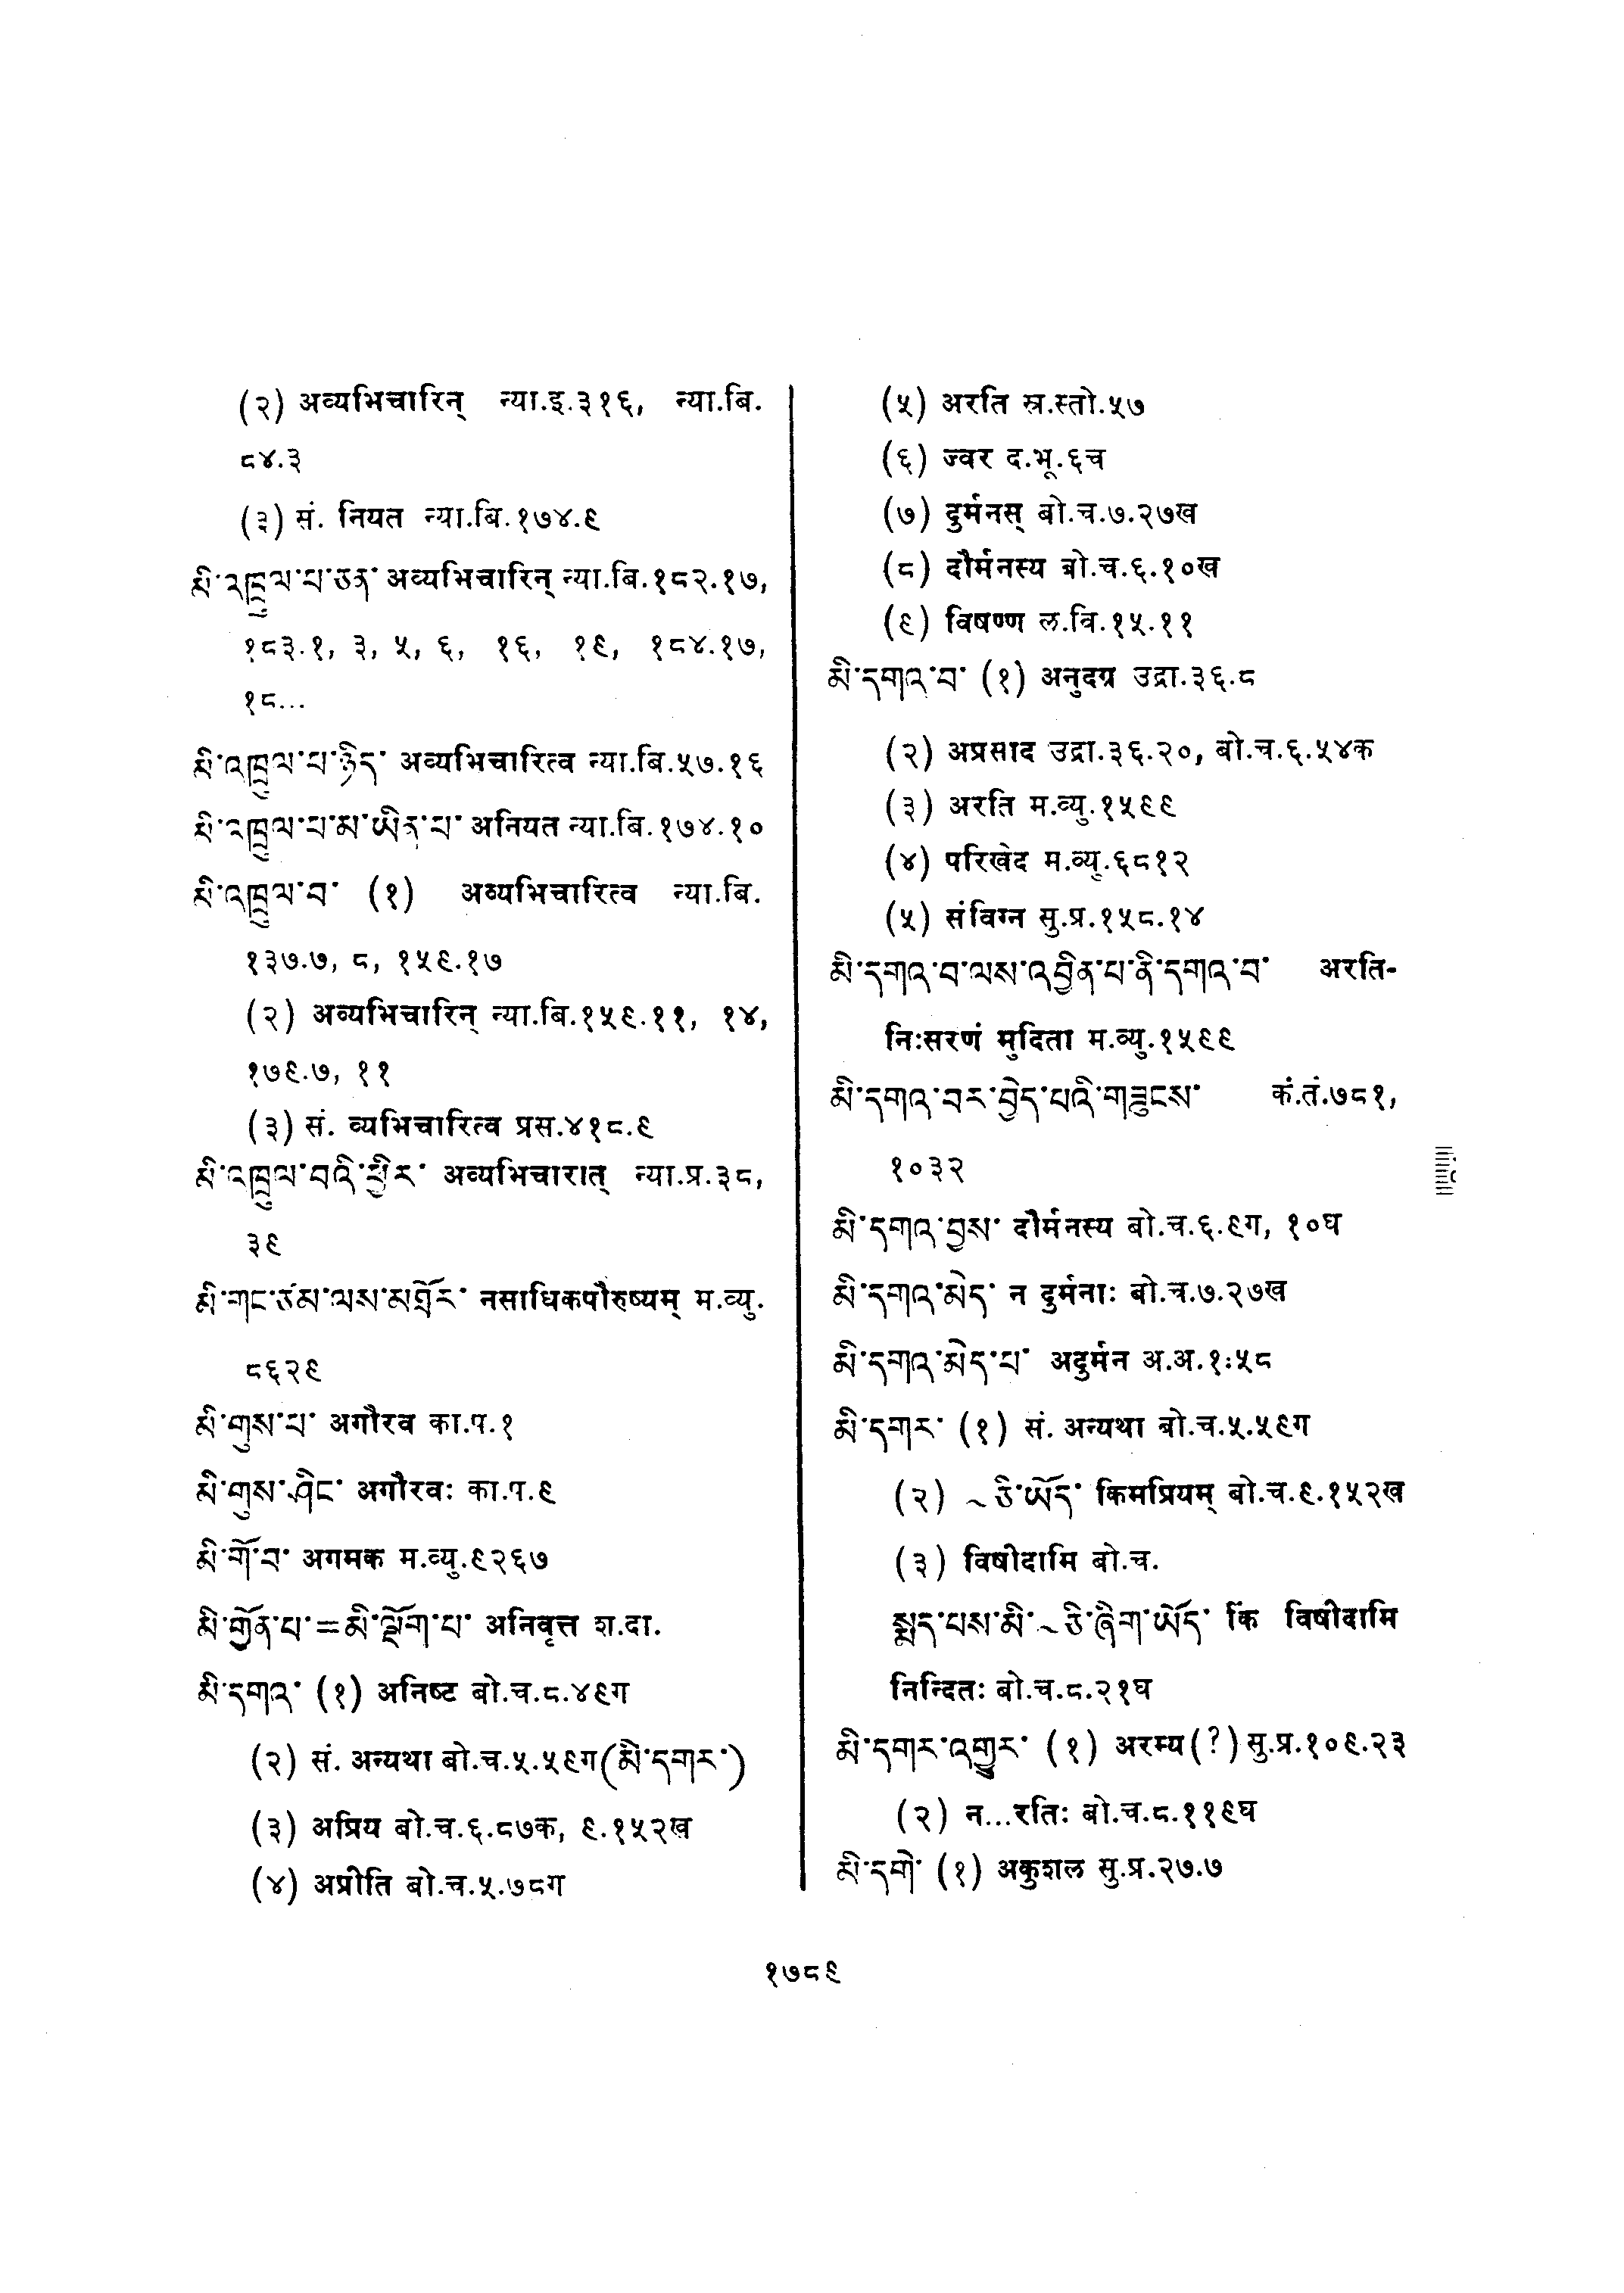 (२) अव्यभिचारिन् न्या.इ.३१६, न्या.बि.
८४.३
(३) सं. नियत न्या.बि.१७४.९
མི་འཁྲུལ་པ་ཅན་ अव्यभिचारिन् न्या.बि.१८२.१७,
१८३.१, ३, ५, ६, १६, १९, १८४.१७,
१८...
མི་འཁྲུལ་པ་ཉིད་ अव्यभिचारित्व न्या.बि.५७.१६
མི་འཁྲུལ་པ་མ་ཡིན་པ་ अनियत न्या.बि.१७४.१०
མི་འཁྲུལ་བ་ (१) अव्यभिचारित्व न्या.बि.
१३७.७, ८, १५९.१७
(२) अव्यभिचारिन् न्या.बि.१५९.११, १४,
१७९.७, ११
(३) सं. व्यभिचारित्व प्रस.४१८.९
མི་འཁྲུལ་བའི་ཕྱིར་ अव्यभिचारात् न्या.प्र.३८,
३९
མི་གང་ཙམ་ལས་མ་བྲོར་ नसाधिकपौरुष्यम् म.व्यु.
८६२९
མི་གུས་པ་ अगौरव का.प.१
མི་གུས་ཤིང་ अगौरवः का.प.९
མི་གོ་བ་ अगमक म.व्यु.९२६७
མི་གྱོན་པ་=མི་ལྡོག་པ་ अनिवृत्त श.दा.
མི་དགའ་ (१) अनिष्ट बो.च.८.४९ग
(२) सं. अन्यथा बो.च.५.५९ग(མི་དགར་)
(३) अप्रिय बो.च.६.८७क, ९.१५२ख
(४) अप्रीति बो.च.५.७८ग
(५) अरति स्र.स्तो.५७
(६) ज्वर द.भू.६च
(७) दुर्मनस् बो.च.७.२७ख
(८) दौर्मनस्य बो.च.६.१०ख
(९) विषण्ण ल.वि.१५.११
མི་དགའ་བ་ (१) अनुदग्र उद्रा.३६.८
(२) अप्रसाद उद्रा.३६.२०, बो.च.६.५४क
(३) अरति म.व्यु.१५९९
(४) परिखेद म.व्यु.६८१२
(५) संविग्न सु.प्र.१५८.१४
མི་དགའ་བ་ལས་འབྱིན་པ་ནི་དགའ་བ་ अरति-
निःसरणं मुदिता म.व्यु.१५९९
མི་དགའ་བར་བྱེད་པའི་གཟུངས་ कं.तं.७८१,
१०३२
མི་དགའ་བྱས་ दौर्मनस्य बो.च.६.९ग, १०घ
མི་དགའ་མེད་ न दुर्मनाः बो.च.७.२७ख
མི་དགའ་མེད་པ་ अदुर्मन अ.अ.१:५८
མི་དགར་ (१) सं. अन्यथा बो.च.५.५९ग
(२) ~ཅི་ཡོད་ किमप्रियम् बो.च.९.१५२ख
(३) विषीदामि बो.च.
སྨད་པས་མི་~ཅི་ཞིག་ཡོད་ किं विषीदामि
निन्दितः बो.च.८.२१घ
མི་དགར་འགྱུར་ (१) अरम्य(?) सु.प्र.१०९.२३
(२) न...रतिः बो.च.८.११९घ
མི་དགེ་ (१) अकुशल सु.प्र.२७.७
१७८९